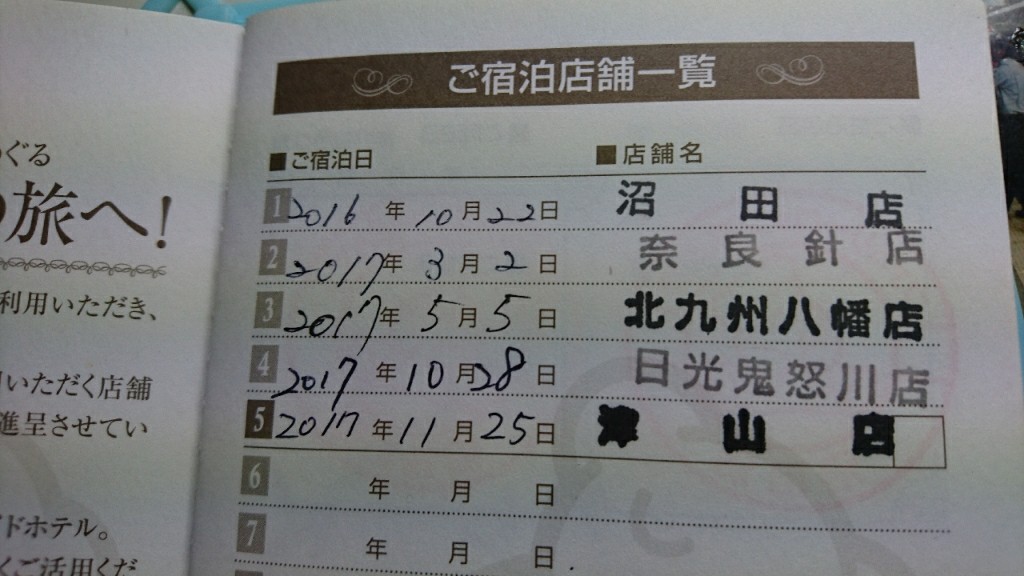 ぐる
旅へ!
利用いただき、
いただく店舗
進呈させてい
ドホテル。
くご活用くだ
ご宿泊店舗一覧
■ご宿泊日 ■店舗名
1 2016年10月22日 沼田店
2 2017年3月2日 奈良針店
3 2017年5月5日 北九州八幡店
4 2017年10月28日 日光鬼怒川店
5 2017年11月25日 津山店
6 年 月 日
7 年 月 日